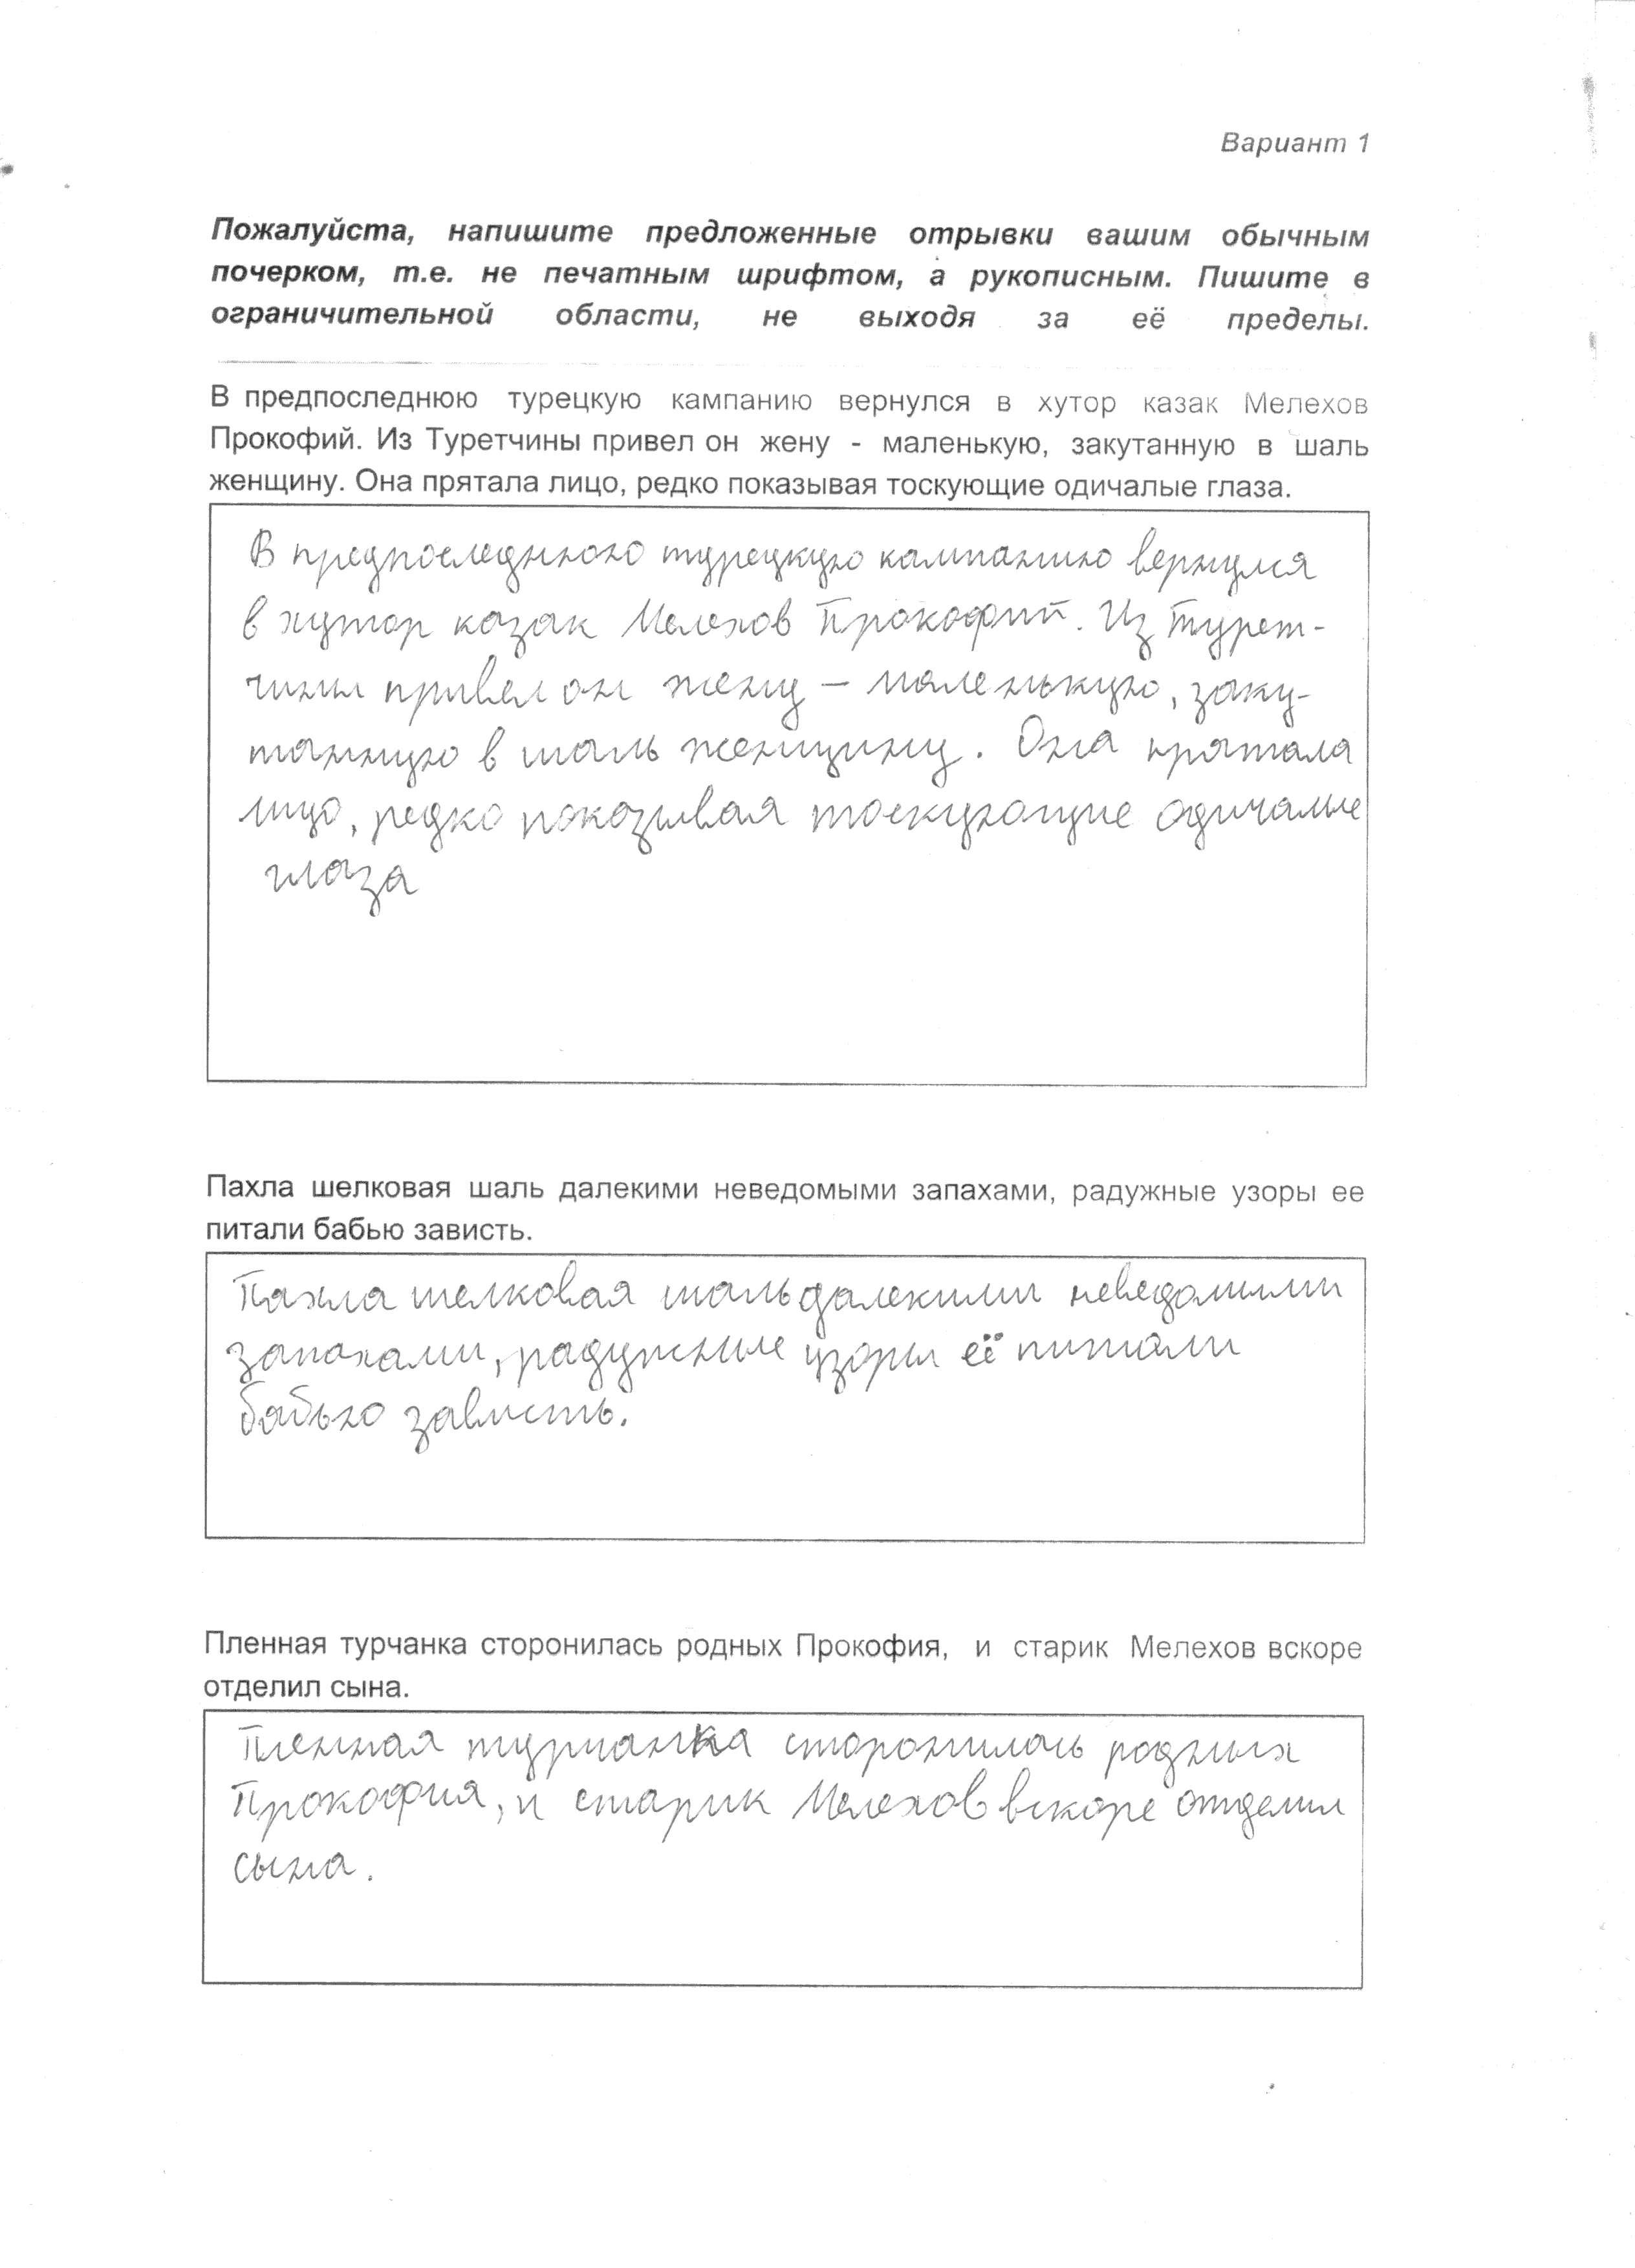 Вариант 1
Пожалуйста, напишите предложенные отрывки вашим обычным
почерком, т.е. не печатным шрифтом, а рукописным. Пишите в
ограничительной области, не выходя за её пределы.
В предпоследнюю турецкую кампанию вернулся в хутор казак Мелехов
Прокофий. Из Туретчины привел он жену - маленькую, закутанную в шаль
женщину. Она прятала лицо, редко показывая тоскующие одичалые глаза.
В предпоследнюю турецкую кампанию вернулся
в хутор казак Мелехов Прокофий. Из Турет-
чины привел он жену – маленькую, заку-
танную в шаль женщину. Она прятала
лицо, редко показывая тоскующие одичалые
глаза
Пахла шелковая шаль далекими неведомыми запахами, радужные узоры ее
питали бабью зависть.
Пахла шелковая шаль далекими неведомыми
запахами, радужные узоры её питали
бабью зависть.
Пленная турчанка сторонилась родных Прокофия, и старик Мелехов вскоре
отделил сына.
Пленная турчанка сторонилась родных
Прокофия, и старик Мелехов вскоре отделил
сына.